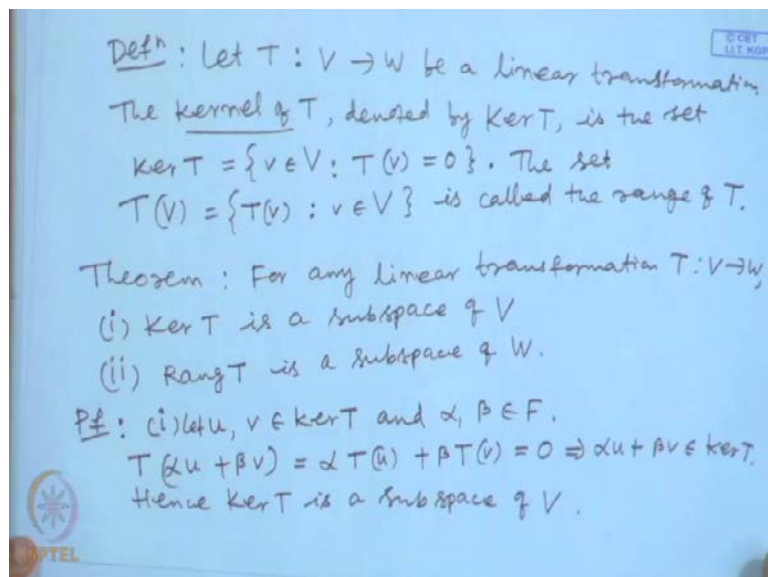 Defⁿ : Let T : V → W be a linear transformation.
© CET
I.I.T. KGP
The Kernel of T, denoted by Ker T, is the set
Ker T = {v ∈ V : T(v) = 0}. The set
T(V) = {T(v) : v ∈ V} is called the range of T.
Theorem : For any linear transformation T : V → W,
(i) Ker T is a subspace of V
(ii) Rang T is a subspace of W.
Pf : (i) Let u, v ∈ Ker T and α, β ∈ F.
T(αu + βv) = α T(u) + β T(v) = 0 ⇒ αu + βv ∈ Ker T.
Hence Ker T is a subspace of V.
NPTEL